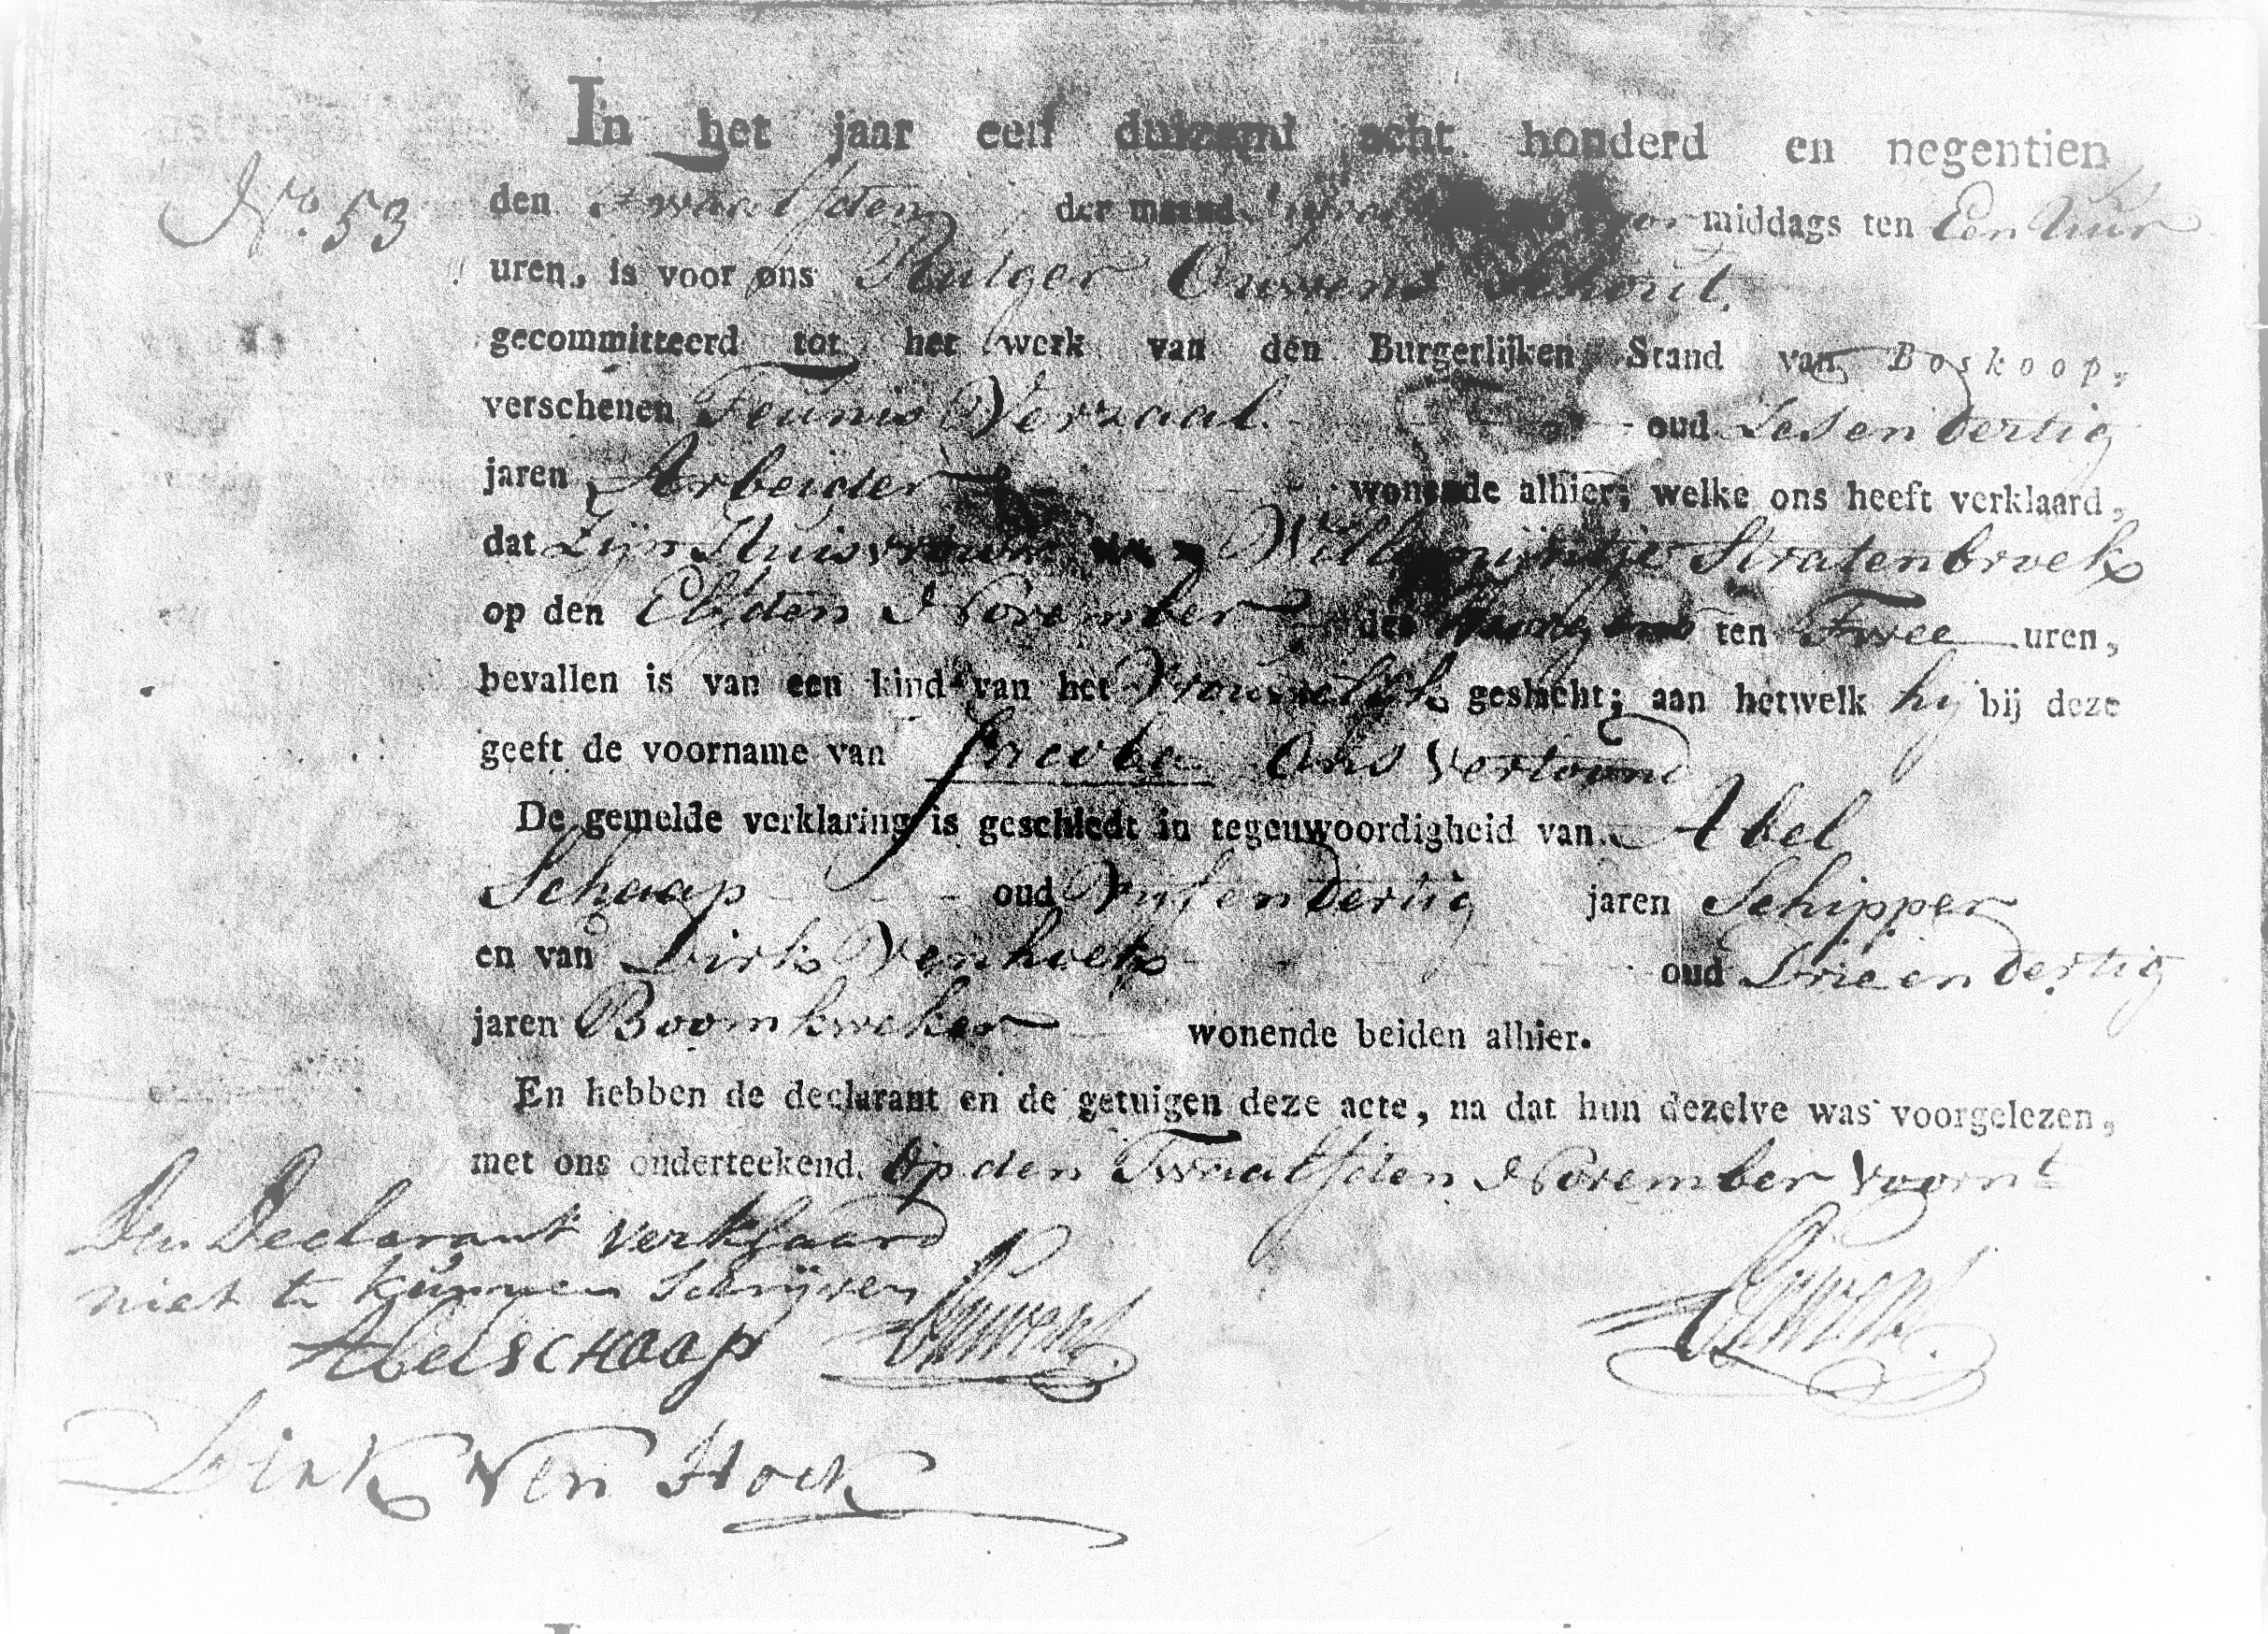 In het jaar een duizend acht honderd en negentien
No. 53
den Twaalfden der maand middags ten Een Uur
uren, is voor ons Rutger Ouwens Schout
gecommitteerd tot het werk van den Burgerlijken Stand van Boskoop,
verschenen Teunis Verzaal oud Sesendertig
jaren Arbeider wonende alhier; welke ons heeft verklaard,
dat Zijn Huisvrouw Willemijntje Stratenbroek
op den Elfden November des ten Twee uren,
bevallen is van een kind van het Vrouwelijk geslacht; aan hetwelk hij bij deze
geeft de voorname van Jacoba Ons Vertoond
De gemelde verklaring is geschiedt in tegenwoordigheid van Abel
Schaap oud Vijfendertig jaren Schipper
en van Dirk Venhoek oud Drieendertig
jaren Boomkweker wonende beiden alhier.
En hebben de declarant en de getuigen deze acte, na dat hun dezelve was voorgelezen,
met ons onderteekend. Op den Twaalfden November voornt
Den Declarant verklaard
niet te kunnen schrijven
Abel SCHaap Ouwens Ouwens
Dirk Ven Hoek